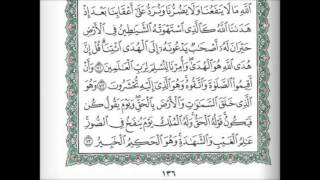 اللَّهِ مَا لَا يَنفَعُنَا وَلَا يَضُرُّنَا وَنُرَدُّ عَلَىٰ أَعْقَابِنَا بَعْدَ إِذْ
هَدَىٰنَا اللَّهُ كَالَّذِي اسْتَهْوَتْهُ الشَّيَٰطِينُ فِي الْأَرْضِ
حَيْرَانَ لَهُ أَصْحَٰبٌ يَدْعُونَهُ إِلَى الْهُدَى ائْتِنَا قُلْ إِنَّ
هُدَى اللَّهِ هُوَ الْهُدَىٰ وَأُمِرْنَا لِنُسْلِمَ لِرَبِّ الْعَٰلَمِينَ ٧١
وَأَنْ أَقِيمُوا الصَّلَوٰةَ وَاتَّقُوهُ وَهُوَ الَّذِي إِلَيْهِ تُحْشَرُونَ ٧٢ وَهُوَ
الَّذِي خَلَقَ السَّمَٰوَٰتِ وَالْأَرْضَ بِالْحَقِّ وَيَوْمَ يَقُولُ كُن
فَيَكُونُ قَوْلُهُ الْحَقُّ وَلَهُ الْمُلْكُ يَوْمَ يُنفَخُ فِي الصُّورِ
عَٰلِمُ الْغَيْبِ وَالشَّهَٰدَةِ وَهُوَ الْحَكِيمُ الْخَبِيرُ ٧٣
١٣٦